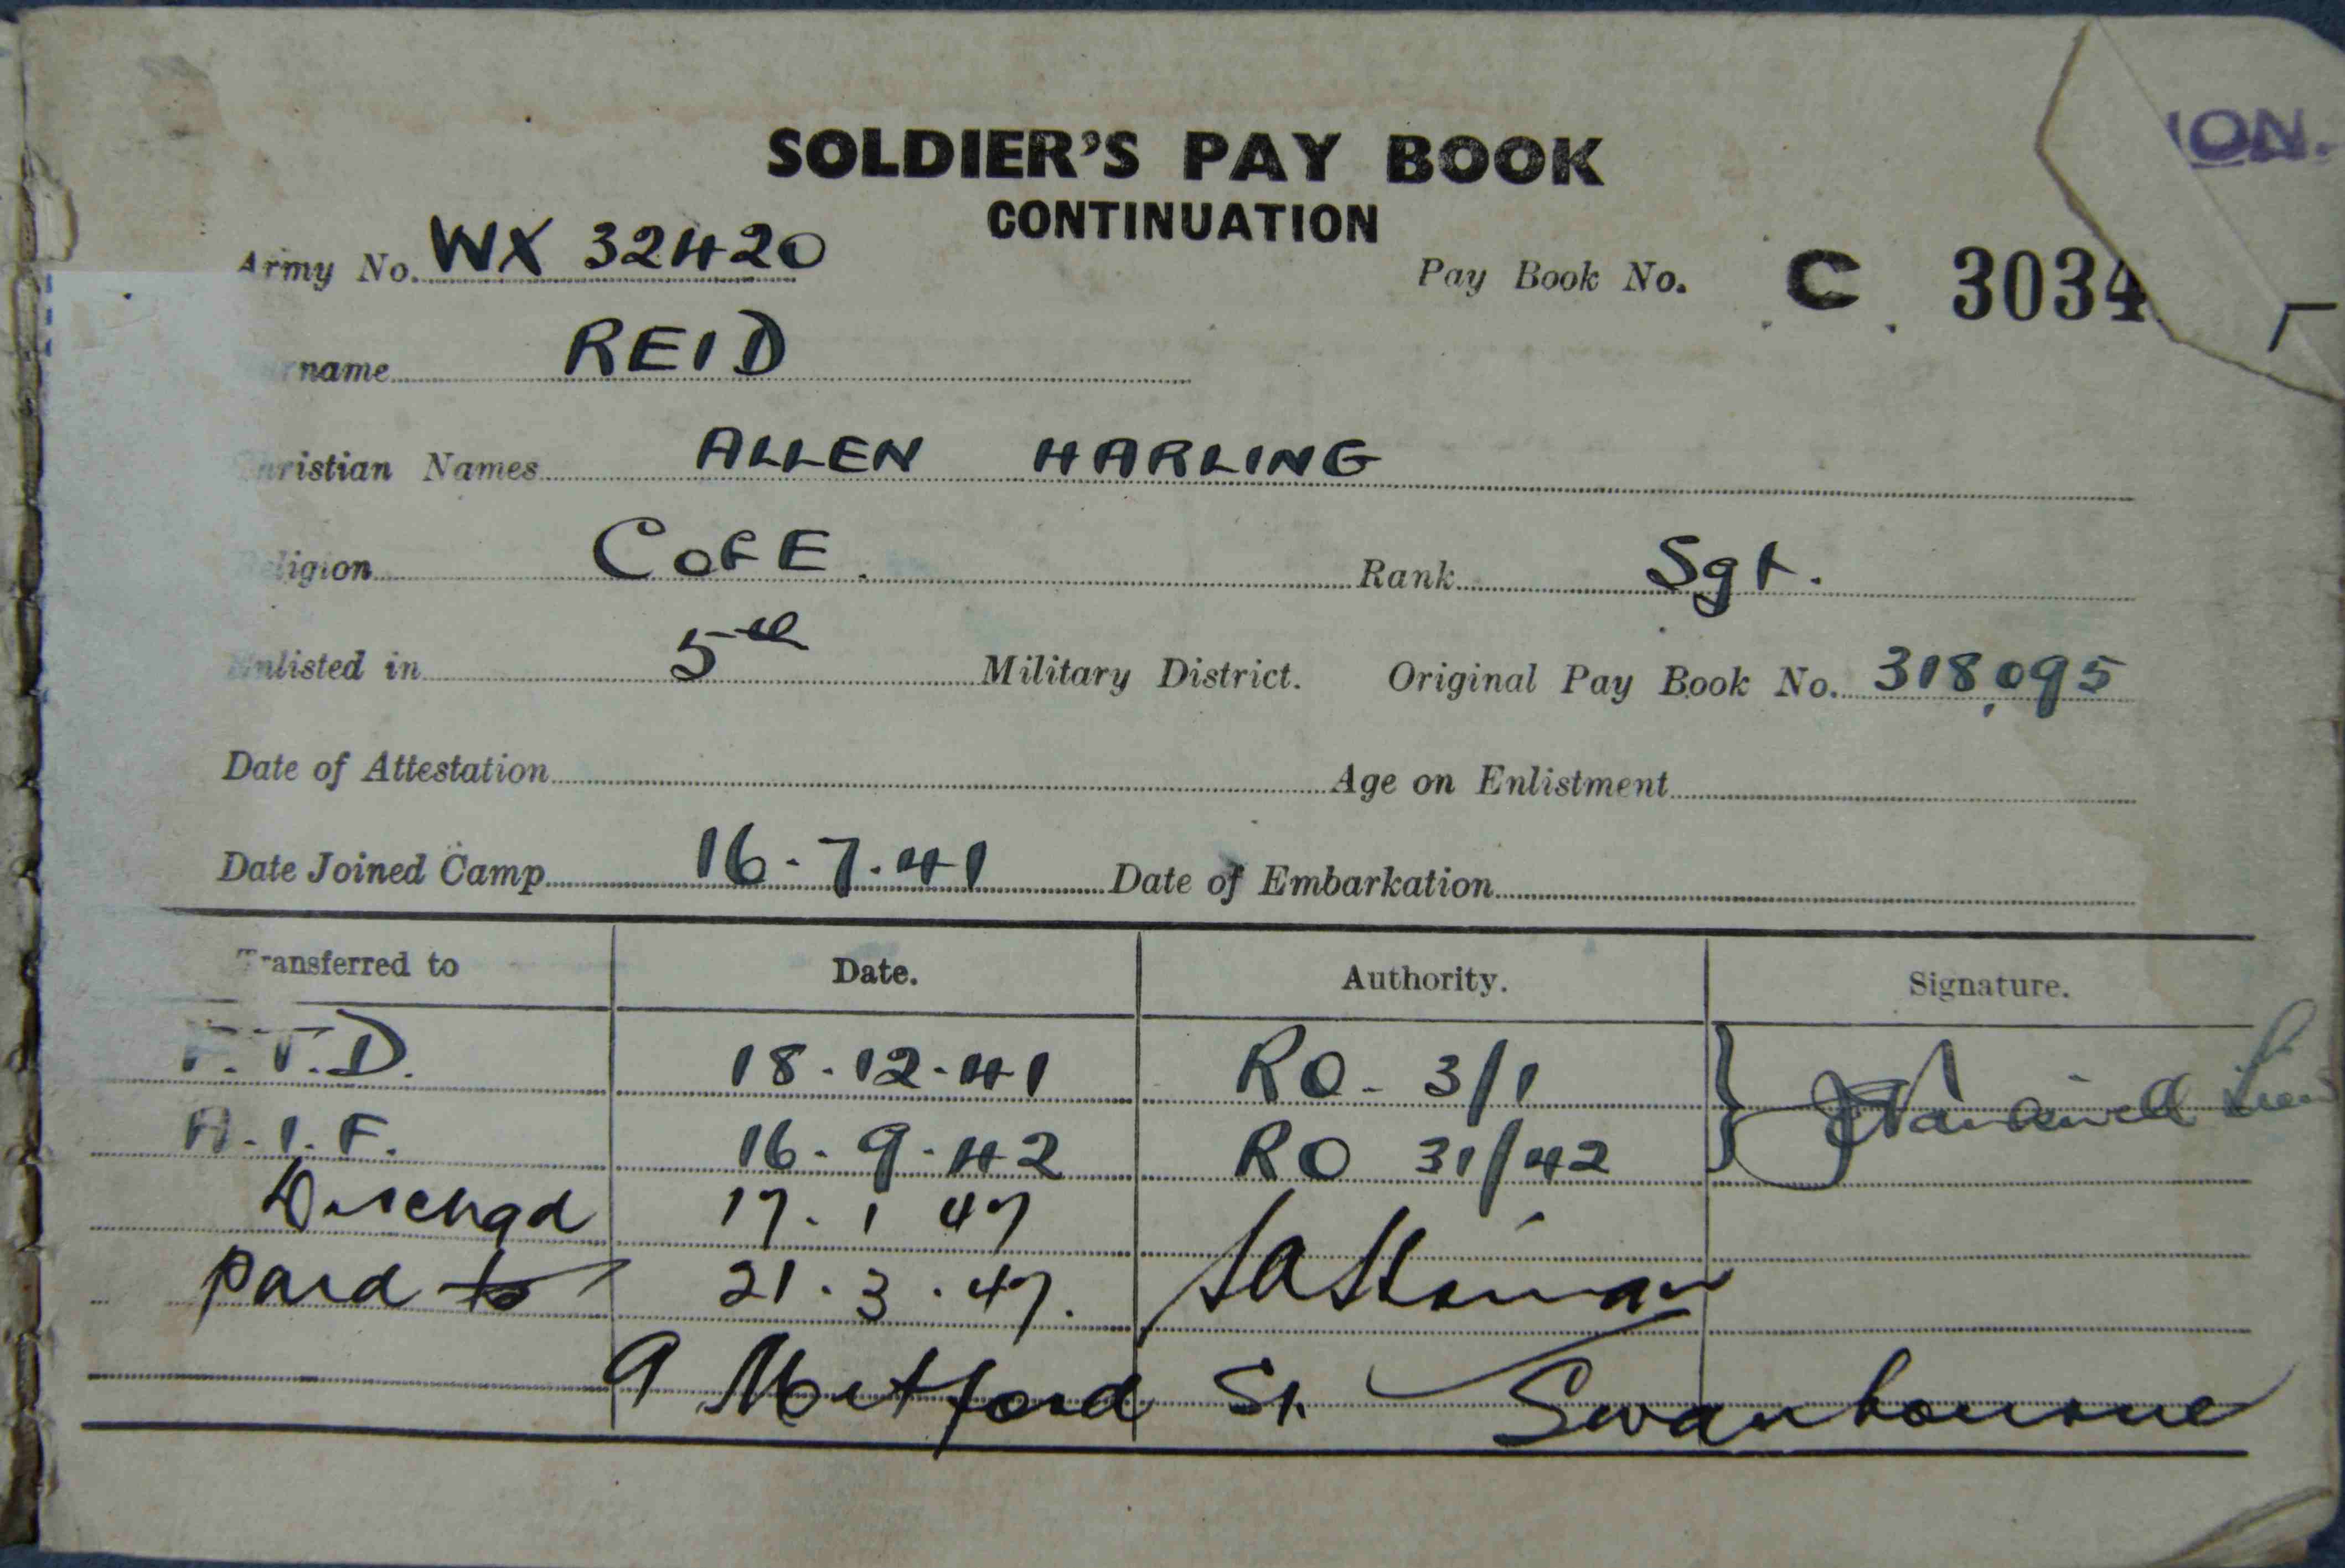 ION.
SOLDIER'S PAY BOOK
CONTINUATION
Army No. WX 32420 Pay Book No. C 3034
rname REID
Christian Names ALLEN HARLING
Religion C of E. Rank Sgt.
Enlisted in 5th Military District. Original Pay Book No. 318,095
Date of Attestation Age on Enlistment
Date Joined Camp 16.7.41 Date of Embarkation
Transferred to Date. Authority. Signature.
F.T.D. 18.12.41 RO. 3/1
A.I.F. 16.9.42 RO 31/42
Dischgd 17.1 47
paid to 21.3.47.
9 Mitford St. Swanbourne